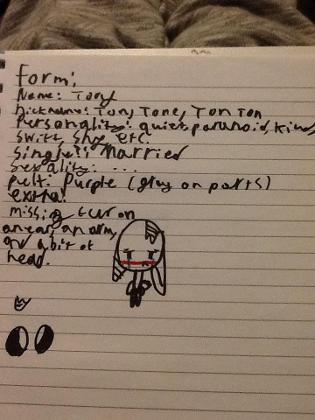 Form:
Name: Tony
Nickname: Ton, Tone, Ton Ton
Personality: quiet, paranoid, kind,
swift, shy, etc.
single: Married
sexality: ...
pelt: Purple (grey on parts)
extra:
missing fur on
an ear, an arm,
and a bit of
head.